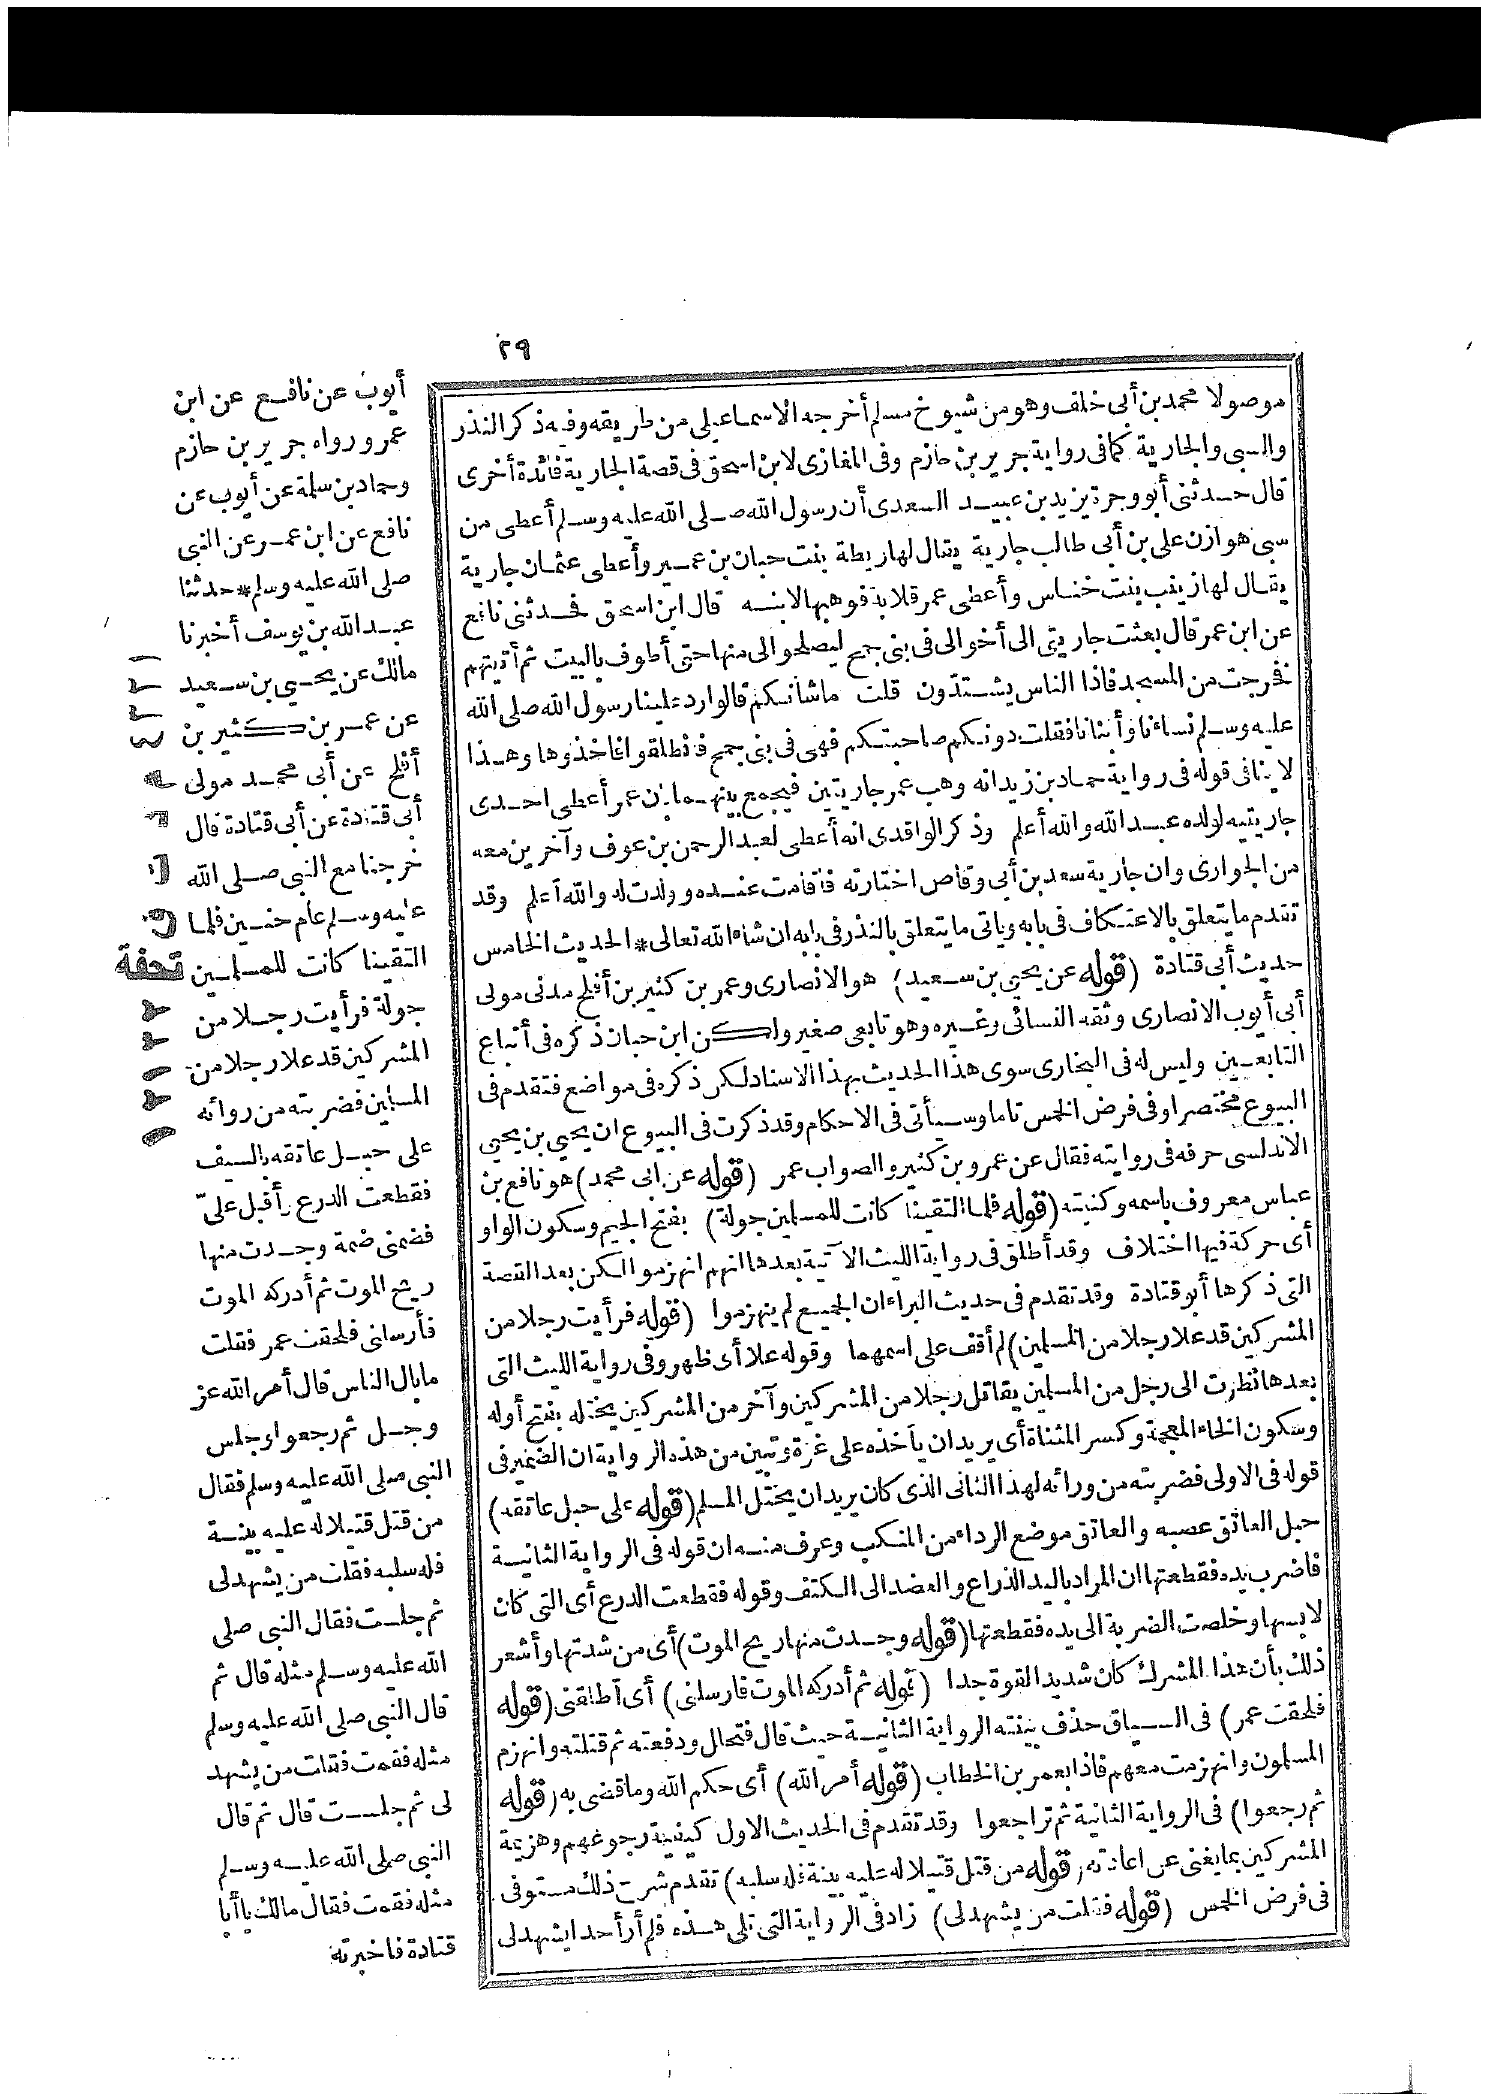 ٢٩
موصولا محمد بن أبى خلف وهو من شيوخ مسلم أخرجه الاسماعيلى من طريقه وفيه ذكر النذر
والسبى والجارية كما فى رواية جرير بن حازم وفى المغازى لابن اسحق فى قصة الجارية فائدة أخرى
قال حدثنى أبو وجرة يزيد بن عبيد السعدى أن رسول الله صلى الله عليه وسلم أعطى من
سبى هوازن على بن أبى طالب جارية يقال لها ريطة بنت حبان بن عمير وأعطى عثمان جارية
يقال لها زينب بنت خناس وأعطى عمر قلابة فوهبها لابنه قال ابن اسحق فحدثنى نافع
عن ابن عمر قال بعثت جاريتى الى أخوالى فى بنى جمح ليصلحوا لى منها حتى أطوف بالبيت ثم أتيتهم
فخرجت من المسجد فاذا الناس يشتدون قلت ما شأنكم قالوا رد علينا رسول الله صلى الله
عليه وسلم نساءنا وأبناءنا فقلت دونكم صاحبتكم فهى فى بنى جمح فانطلقوا فاخذوها وهذا
لا ينافى قوله فى رواية حماد بن زيد انه وهب عمر جاريتين فيجمع بينهما بان عمر أعطى احدى
جاريتيه لولده عبد الله والله أعلم وذكر الواقدى انه أعطى لعبد الرحمن بن عوف وآخرين معه
من الجوارى وان جارية سعد بن أبى وقاص اختارته فاقامت عنده وولدت له والله أعلم وقد
تقدم ما يتعلق بالاعتكاف فى بابه وياتى ما يتعلق بالنذر فى بابه ان شاء الله تعالى * الحديث الخامس
حديث أبى قتادة (قوله عن يحيى بن سعيد) هو الانصارى وعمر بن كثير بن أفلح مدنى مولى
أبى أيوب الانصارى وثقه النسائى وغيره وهو تابعى صغير ولكن ابن حبان ذكره فى أتباع
التابعين وليس له فى البخارى سوى هذا الحديث بهذا الاسناد لكن ذكره فى مواضع فتقدم فى
البيوع مختصرا وفى فرض الخمس تاما وسيأتى فى الاحكام وقد ذكرت فى البيوع ان يحيى بن يحيى
الاندلسى حرفه فى روايته فقال عن عمرو بن كثير والصواب عمر (قوله عن ابى محمد) هو نافع بن
عباس معروف باسمه وكنيته (قوله فلما التقينا كانت للمسلمين جولة) بفتح الجيم وسكون الواو
أى حركة فيها اختلاف وقد أطلق فى رواية الليث الآتية بعدها انهم انهزموا لكن بعد القصة
التى ذكرها أبو قتادة وقد تقدم فى حديث البراء ان الجميع لم ينهزموا (قوله فرأيت رجلا من
المشركين قد علا رجلا من المسلمين) لم أقف على اسمهما وقوله علا أى ظهر وفى رواية الليث التى
بعدها نظرت الى رجل من المسلمين يقاتل رجلا من المشركين وآخر من المشركين يختله بفتح أوله
وسكون الخاء المعجمة وكسر المثناة أى يريد ان يأخذه على غرة وتبين من هذه الرواية ان الضمير فى
قوله فى الاولى فضربته من ورائه لهذا الثانى الذى كان يريد ان يختل المسلم (قوله على حبل عاتقه)
حبل العاتق عصبه والعاتق موضع الرداء من المنكب وعرف منه ان قوله فى الرواية الثانية
فاضرب يده فقطعتها ان المراد باليد الذراع والعضد الى الكتف وقوله فقطعت الدرع أى التى كان
لابسها وخلصت الضربة الى يده فقطعتها (قوله وجدت منها ريح الموت) أى من شدتها وأشعر
ذلك بأن هذا المشرك كان شديد القوة جدا (قوله ثم أدركه الموت فارسلنى) أى أطلقنى (قوله
فلحقت عمر) فى السياق حذف بينته الرواية الثانية حيث قال فتحلل ودفعته ثم قتلته وانهزم
المسلمون وانهزمت معهم فاذا بعمر بن الخطاب (قوله أمر الله) أى حكم الله وما قضى به (قوله
ثم رجعوا) فى الرواية الثانية ثم تراجعوا وقد تقدم فى الحديث الاول كيفية رجوعهم وهزيمة
المشركين بما يغنى عن اعادته (قوله من قتل قتيلا له عليه بينة فله سلبه) تقدم شرح ذلك مستوفى
فى فرض الخمس (قوله فقلت من يشهد لى) زاد فى الرواية التى تلى هذه فلم أر أحدا يشهد لى
أيوب عن نافع عن ابن
عمر ورواه جرير بن حازم
وحماد بن سلمة عن أيوب عن
نافع عن ابن عمر عن النبى
صلى الله عليه وسلم * حدثنا
عبد الله بن يوسف أخبرنا
مالك عن يحيى بن سعيد
عن عمر بن كثير بن
أفلح عن أبى محمد مولى
أبى قتادة عن أبى قتادة قال
خرجنا مع النبى صلى الله
عليه وسلم عام حنين فلما
التقينا كانت للمسلمين
جولة فرأيت رجلا من
المشركين قد علا رجلا من
المسلمين فضربته من ورائه
على حبل عاتقه بالسيف
فقطعت الدرع وأقبل علىّ
فضمنى ضمة وجدت منها
ريح الموت ثم أدركه الموت
فأرسلنى فلحقت عمر فقلت
ما بال الناس قال أمر الله عز
وجل ثم رجعوا وجلس
النبى صلى الله عليه وسلم فقال
من قتل قتيلا له عليه بينة
فله سلبه فقلت من يشهد لى
ثم جلست فقال النبى صلى
الله عليه وسلم مثله قال ثم
قال النبى صلى الله عليه وسلم
مثله فقمت فقلت من يشهد
لى ثم جلست قال ثم قال
النبى صلى الله عليه وسلم
مثله فقمت فقال مالك يا أبا
قتادة فاخبرته
تحفة